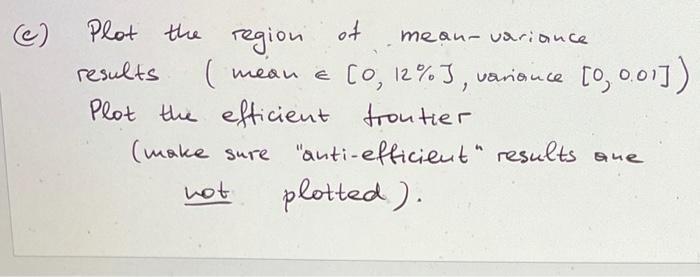 (c) Plot the region of mean-variance
results ( mean ∈ [0, 12%], variance [0, 0.01])
Plot the efficient frontier
(make sure "anti-efficient" results are
not plotted).